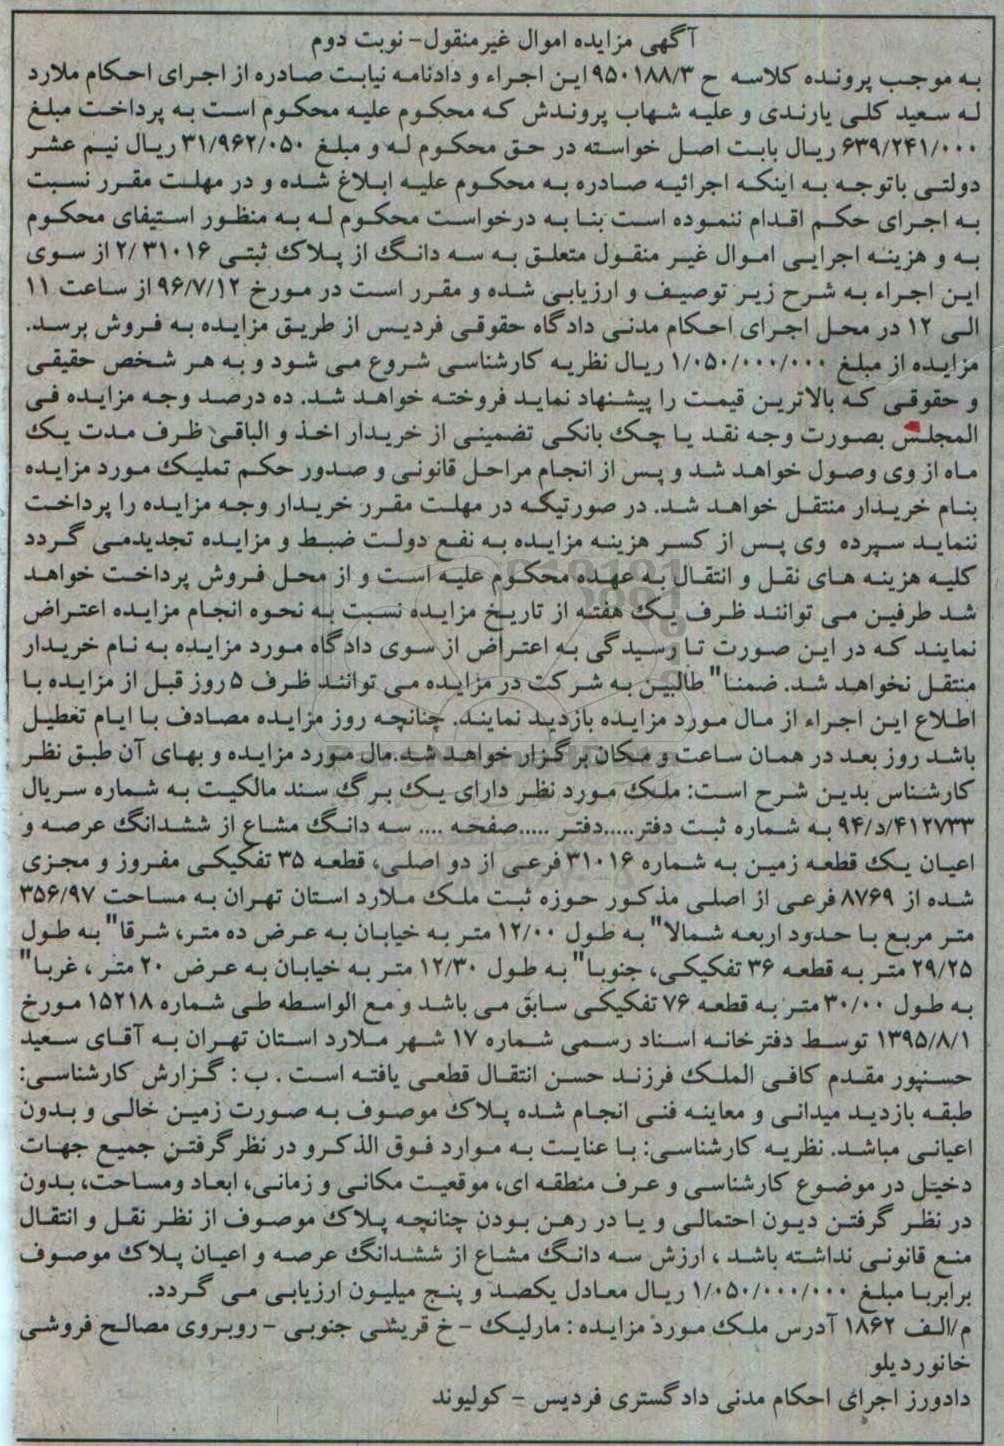 آگهی مزایده اموال غیرمنقول- نوبت دوم
به موجب پرونده کلاسه ح ۹۵۰۱۸۸/۳ این اجراء و دادنامه نیابت صادره از اجرای احکام ملارد
له سعید کلی یارندی و علیه شهاب پروندش که محکوم علیه محکوم است به پرداخت مبلغ
۶۳۹/۲۴۱/۰۰۰ ریال بابت اصل خواسته در حق محکوم له و مبلغ ۳۱/۹۶۲/۰۵۰ ریال نیم عشر
دولتی باتوجه به اینکه اجرائیه صادره به محکوم علیه ابلاغ شده و در مهلت مقرر نسبت
به اجرای حکم اقدام ننموده است بنا به درخواست محکوم له به منظور استیفای محکوم
به و هزینه اجرایی اموال غیر منقول متعلق به سه دانگ از پلاک ثبتی ۳۱۰۱۶ /۲ از سوی
این اجراء به شرح زیر توصیف و ارزیابی شده و مقرر است در مورخ ۹۶/۷/۱۲ از ساعت ۱۱
الی ۱۲ در محل اجرای احکام مدنی دادگاه حقوقی فردیس از طریق مزایده به فروش برسد.
مزایده از مبلغ ۱/۰۵۰/۰۰۰/۰۰۰ ریال نظریه کارشناسی شروع می شود و به هر شخص حقیقی
و حقوقی که بالاترین قیمت را پیشنهاد نماید فروخته خواهد شد. ده درصد وجه مزایده فی
المجلس بصورت وجه نقد یا چک بانکی تضمینی از خریدار اخذ و الباقی ظرف مدت یک
ماه از وی وصول خواهد شد و پس از انجام مراحل قانونی و صدور حکم تملیک مورد مزایده
بنام خریدار منتقل خواهد شد. در صورتیکه در مهلت مقرر خریدار وجه مزایده را پرداخت
ننماید سپرده وی پس از کسر هزینه مزایده به نفع دولت ضبط و مزایده تجدیدمی گردد
کلیه هزینه های نقل و انتقال به عهده محکوم علیه است و از محل فروش پرداخت خواهد
شد طرفین می توانند ظرف یک هفته از تاریخ مزایده نسبت به نحوه انجام مزایده اعتراض
نمایند که در این صورت تا رسیدگی به اعتراض از سوی دادگاه مورد مزایده به نام خریدار
منتقل نخواهد شد. ضمنا" طالبین به شرکت در مزایده می توانند ظرف ۵ روز قبل از مزایده با
اطلاع این اجراء از مال مورد مزایده بازدید نمایند. چنانچه روز مزایده مصادف با ایام تعطیل
باشد روز بعد در همان ساعت و مکان برگزار خواهد شد.مال مورد مزایده و بهای آن طبق نظر
کارشناس بدین شرح است: ملک مورد نظر دارای یک برگ سند مالکیت به شماره سریال
۴۱۲۷۳۳/د/۹۴ به شماره ثبت دفتر.....دفتر .....صفحه .... سه دانگ مشاع از ششدانگ عرصه و
اعیان یک قطعه زمین به شماره ۳۱۰۱۶ فرعی از دو اصلی، قطعه ۳۵ تفکیکی مفروز و مجزی
شده از ۸۷۶۹ فرعی از اصلی مذکور حوزه ثبت ملک ملارد استان تهران به مساحت ۳۵۶/۹۷
متر مربع با حدود اربعه شمالا" به طول ۱۲/۰۰ متر به خیابان به عرض ده متر، شرقا" به طول
۲۹/۲۵ متر به قطعه ۳۶ تفکیکی، جنوبا" به طول ۱۲/۳۰ متر به خیابان به عرض ۲۰ متر ، غربا"
به طول ۳۰/۰۰ متر به قطعه ۷۶ تفکیکی سابق می باشد و مع الواسطه طی شماره ۱۵۲۱۸ مورخ
۱۳۹۵/۸/۱ توسط دفترخانه اسناد رسمی شماره ۱۷ شهر ملارد استان تهران به آقای سعید
حسنپور مقدم کافی الملک فرزند حسن انتقال قطعی یافته است . ب : گزارش کارشناسی:
طبقه بازدید میدانی و معاینه فنی انجام شده پلاک موصوف به صورت زمین خالی و بدون
اعیانی مباشد. نظریه کارشناسی: با عنایت به موارد فوق الذکرو در نظر گرفتن جمیع جهات
دخیل در موضوع کارشناسی و عرف منطقه ای، موقعیت مکانی و زمانی، ابعاد ومساحت، بدون
در نظر گرفتن دیون احتمالی و یا در رهن بودن چنانچه پلاک موصوف از نظر نقل و انتقال
منع قانونی نداشته باشد ، ارزش سه دانگ مشاع از ششدانگ عرصه و اعیان پلاک موصوف
برابربا مبلغ ۱/۰۵۰/۰۰۰/۰۰۰ ریال معادل یکصد و پنج میلیون ارزیابی می گردد.
م/الف ۱۸۶۲ آدرس ملک مورد مزایده : مارلیک - خ قریشی جنوبی - روبروی مصالح فروشی
خانوردیلو
دادورز اجرای احکام مدنی دادگستری فردیس - کولیوند